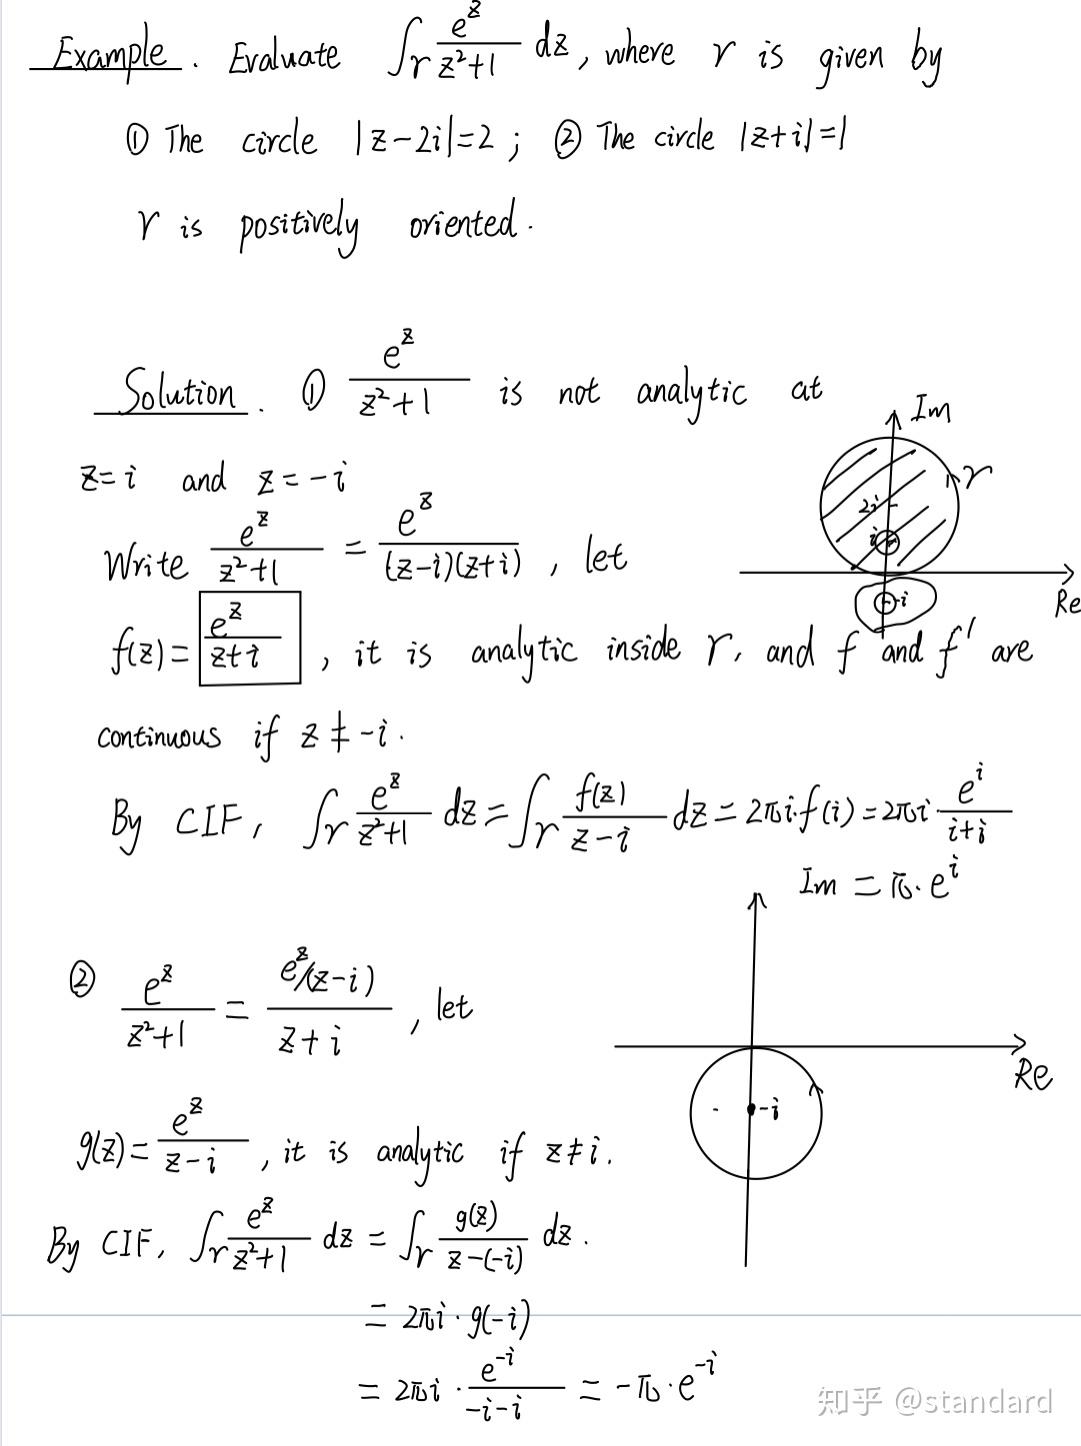 Example. Evaluate ∫_γ e^z/(z²+1) dz, where γ is given by
① The circle |z-2i|=2; ② The circle |z+i|=1
γ is positively oriented.
Solution. ① e^z/(z²+1) is not analytic at
z=i and z=-i
Im
γ
2i
i
-i
Re
Write e^z/(z²+1) = e^z/((z-i)(z+i)), let
f(z)= e^z/(z+i), it is analytic inside γ, and f and f' are
continuous if z≠-i.
By CIF, ∫_γ e^z/(z²+1) dz = ∫_γ f(z)/(z-i) dz = 2πi·f(i) = 2πi·e^i/(i+i)
= π·e^i
Im
Re
-i
② e^z/(z²+1) = (e^z/(z-i))/(z+i), let
g(z)= e^z/(z-i), it is analytic if z≠i.
By CIF, ∫_γ e^z/(z²+1) dz = ∫_γ g(z)/(z-(-i)) dz.
= 2πi·g(-i)
= 2πi·e^-i/(-i-i) = -π·e^-i
知乎 @standard